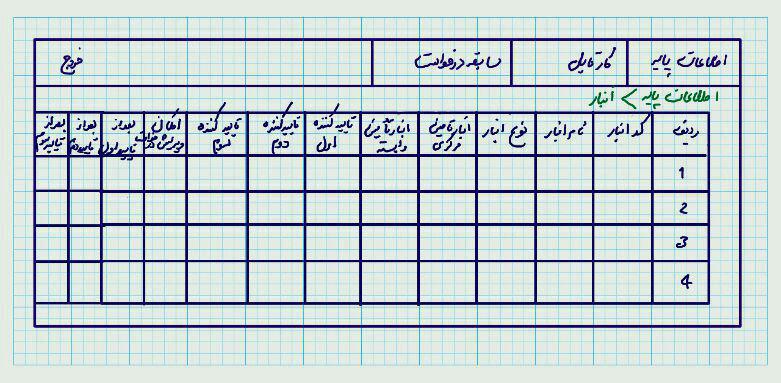 اطلاعات پایه کارتابل سابقه درخواست خروج
اطلاعات پایه > انبار
ردیف کد انبار نام انبار نوع انبار انبار تامین مرکزی انبار تأمین وابسته تایید کننده اول تایید کننده دوم تایید کننده سوم امکان ویرایش درخواست بعد از تایید اول بعد از تایید دوم بعد از تایید سوم
1
2
3
4